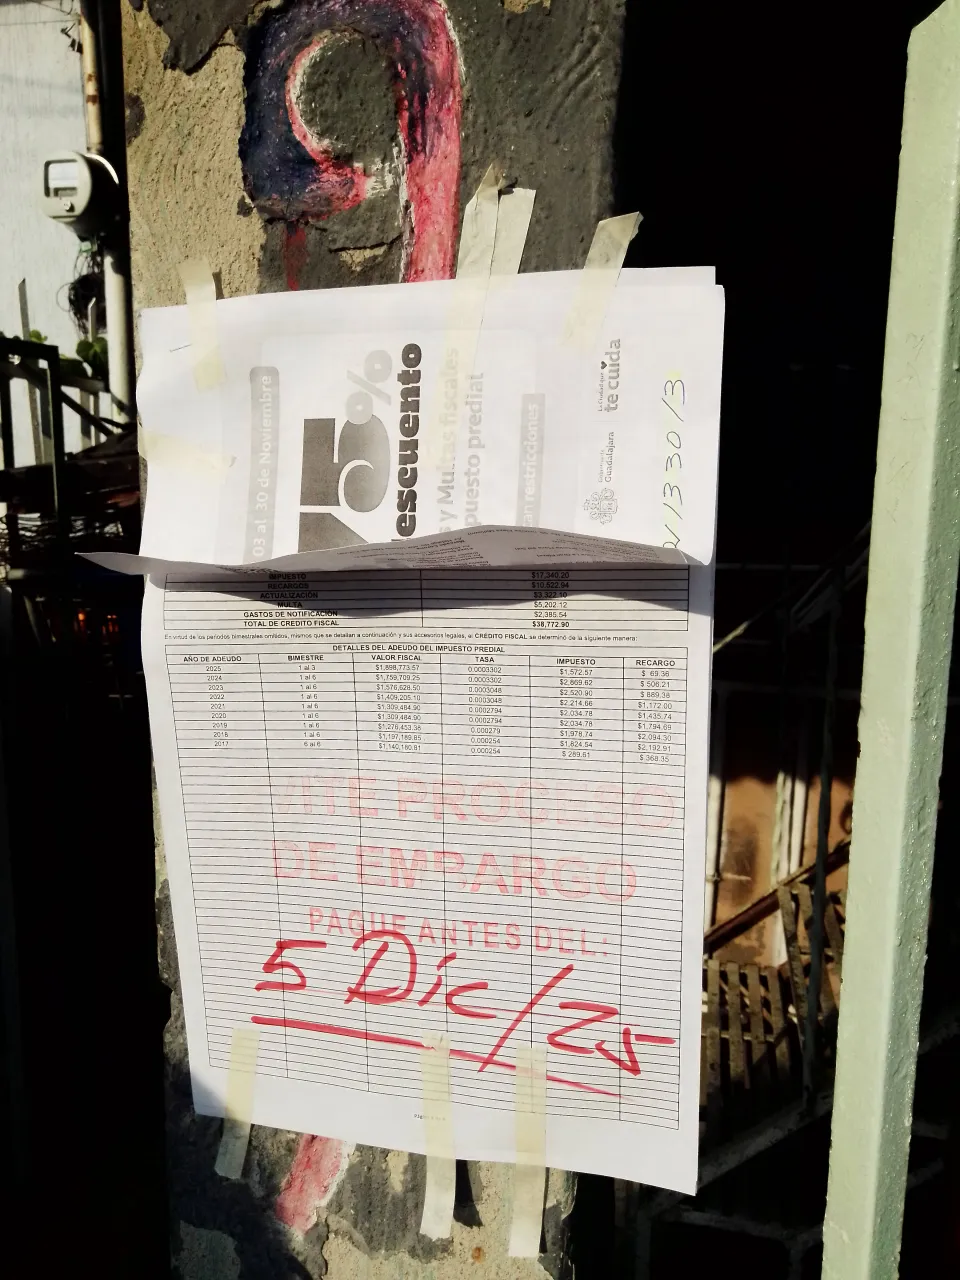 9
03 al 30 de Noviembre
75%
escuento
s y Multas fiscales
puesto predial
can restricciones
Gobierno de
Guadalajara
La Ciudad que
te cuida
IMPUESTO $17,340.20
RECARGOS $10,522.94
ACTUALIZACIÓN $3,322.10
MULTA $5,202.12
GASTOS DE NOTIFICACIÓN $2,385.54
TOTAL DE CREDITO FISCAL $38,772.90
En virtud de los periodos bimestrales omitidos, mismos que se detallan a continuación y sus accesorios legales, el CRÉDITO FISCAL se determinó de la siguiente manera:
DETALLES DEL ADEUDO DEL IMPUESTO PREDIAL
AÑO DE ADEUDO BIMESTRE VALOR FISCAL TASA IMPUESTO RECARGO
2025 1 al 3 $1,898,773.57 0.0003302 $1,572.57 $ 69.36
2024 1 al 6 $1,759,709.25 0.0003302 $2,869.62 $ 506.21
2023 1 al 6 $1,576,628.50 0.0003048 $2,520.90 $ 889.38
2022 1 al 6 $1,409,205.10 0.0003048 $2,214.66 $1,172.00
2021 1 al 6 $1,309,484.90 0.0002794 $2,034.78 $1,435.74
2020 1 al 6 $1,309,484.90 0.0002794 $2,034.78 $1,794.69
2019 1 al 6 $1,276,453.38 0.000279 $1,978.74 $2,094.30
2018 1 al 6 $1,197,189.85 0.000254 $1,824.54 $2,192.91
2017 6 al 6 $1,140,180.81 0.000254 $ 289.61 $ 368.35
VITE PROCESO
DE EMBARGO
PAGUE ANTES DEL:
5 Dic/25